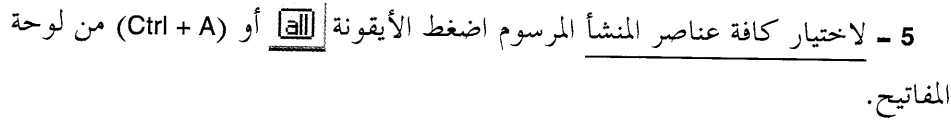 5 – لاختيار كافة عناصر المنشأ المرسوم اضغط الأيقونة all أو (Ctrl + A) من لوحة
المفاتيح.